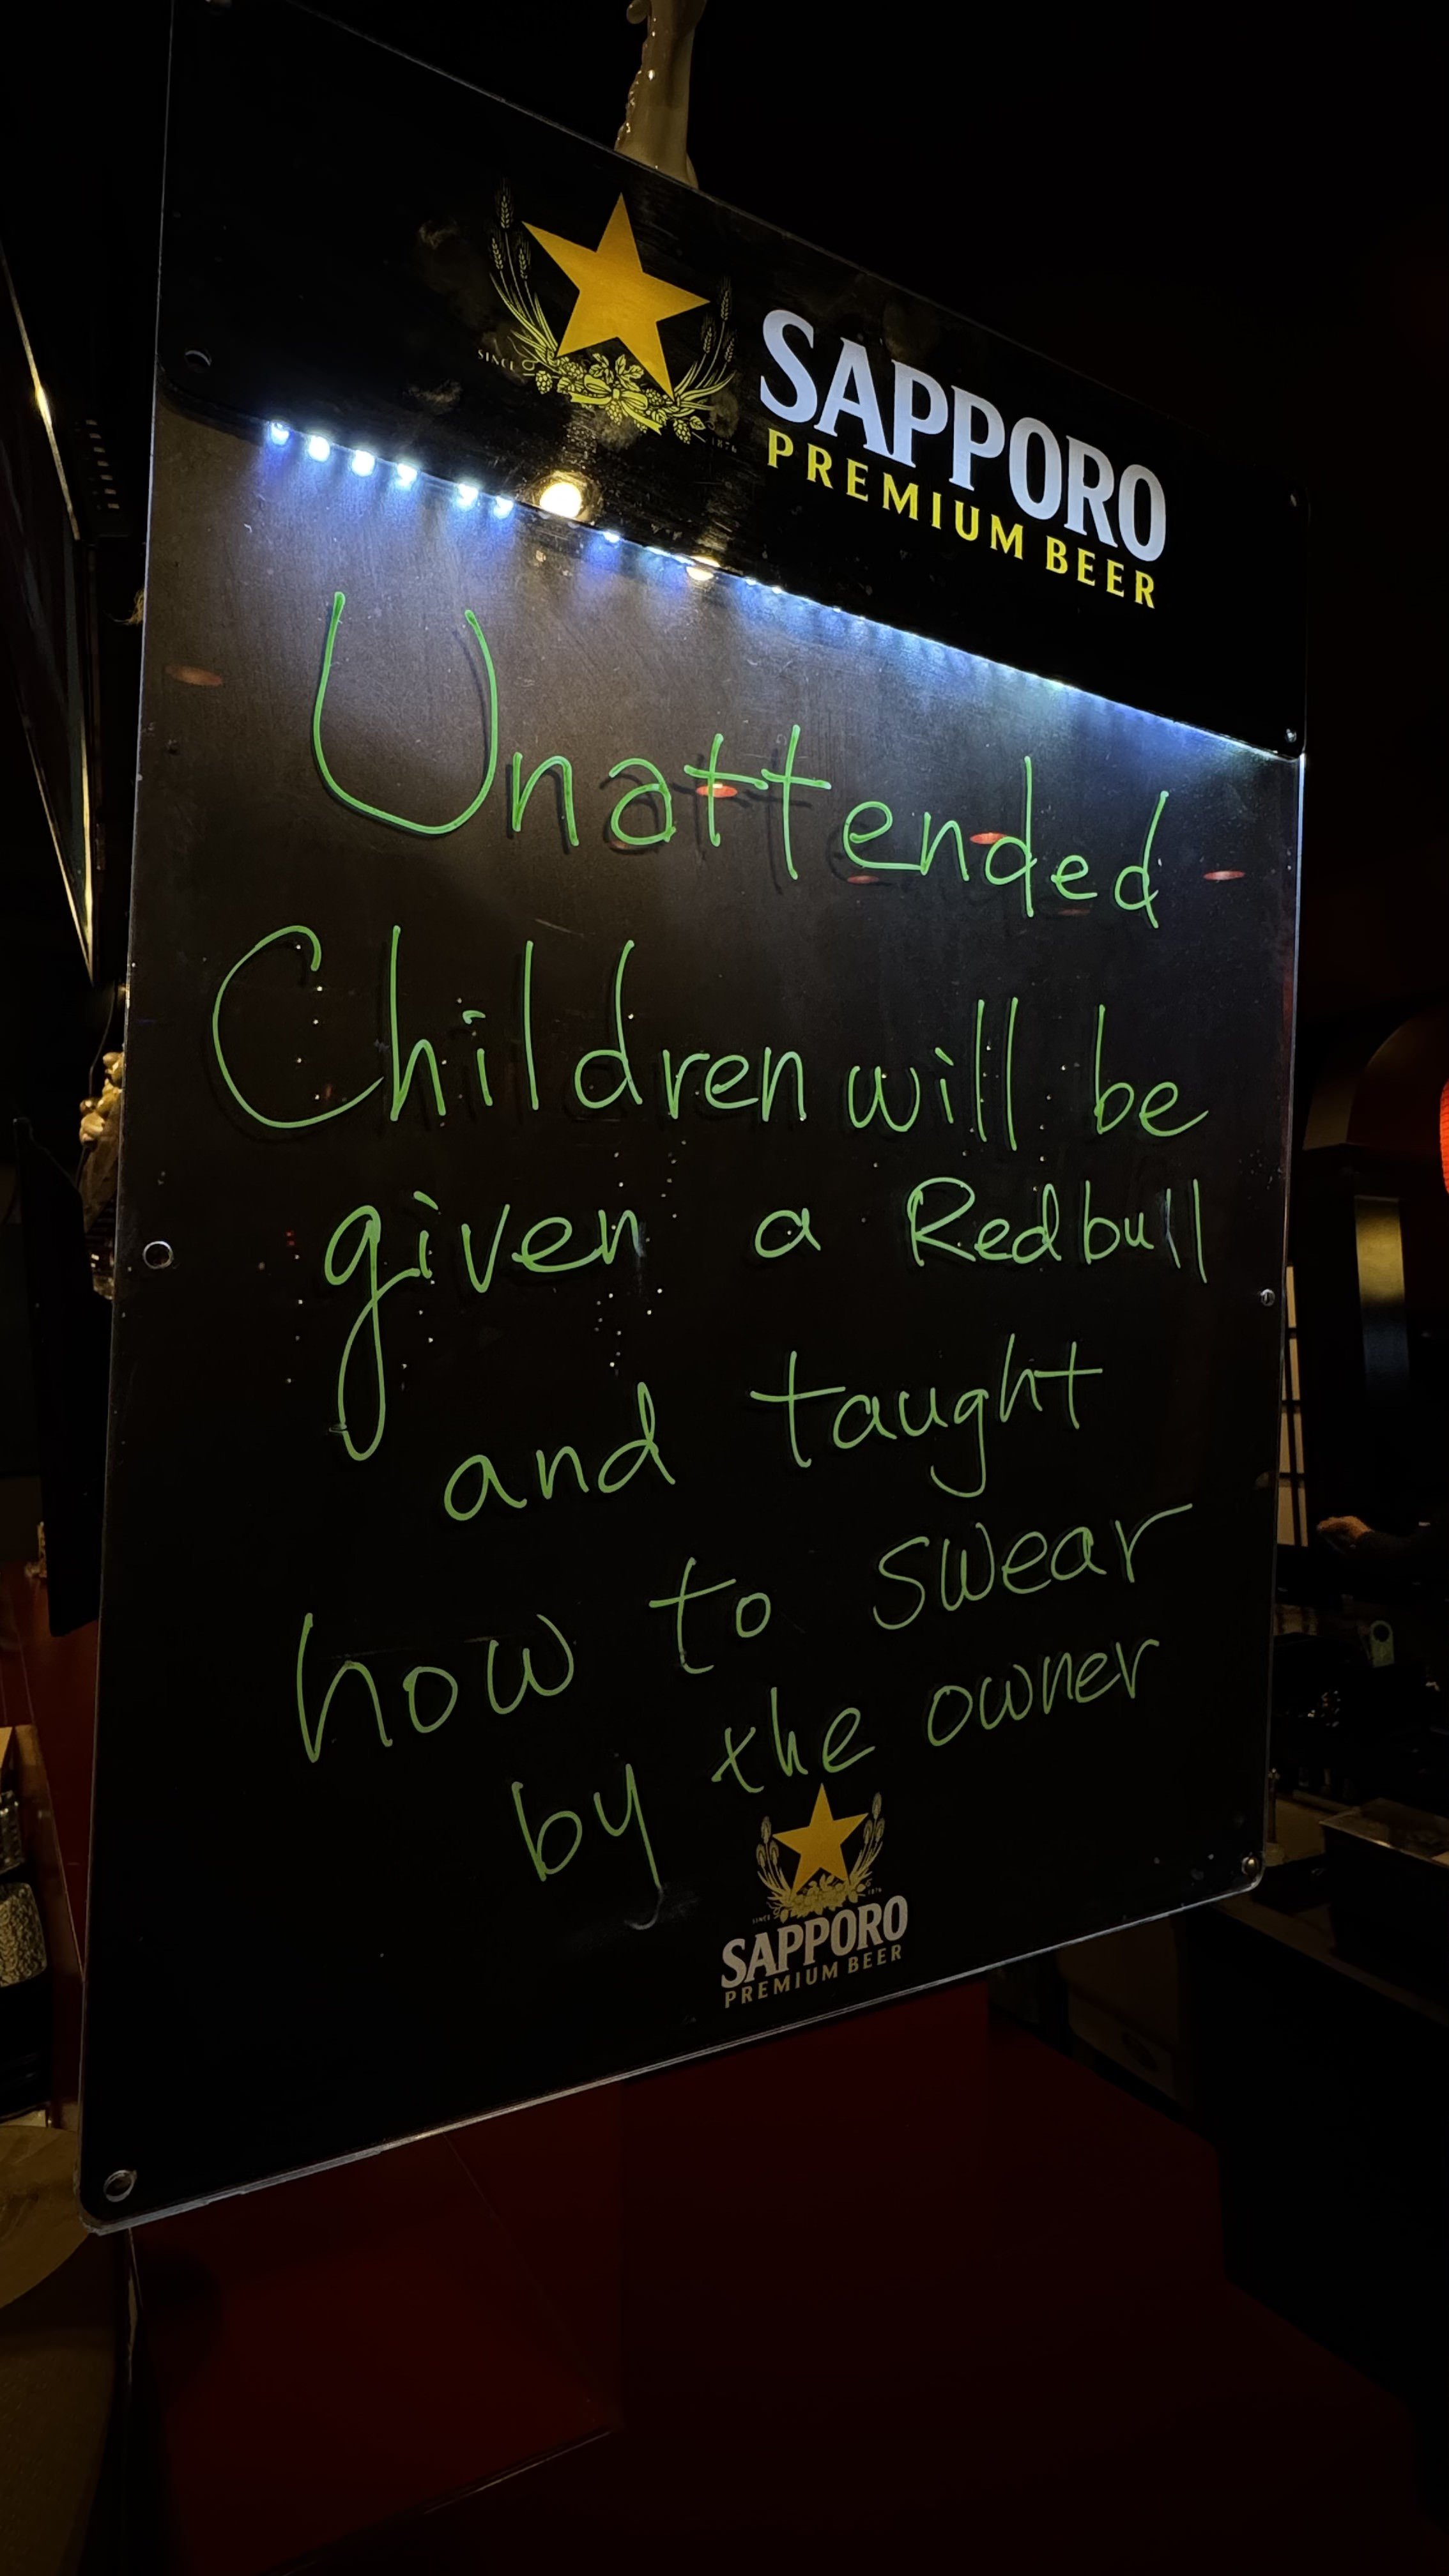 SINCE 1876
SAPPORO
PREMIUM BEER
Unattended
Children will be
given a Redbull
and taught
how to swear
by the owner
SINCE 1876
SAPPORO
PREMIUM BEER